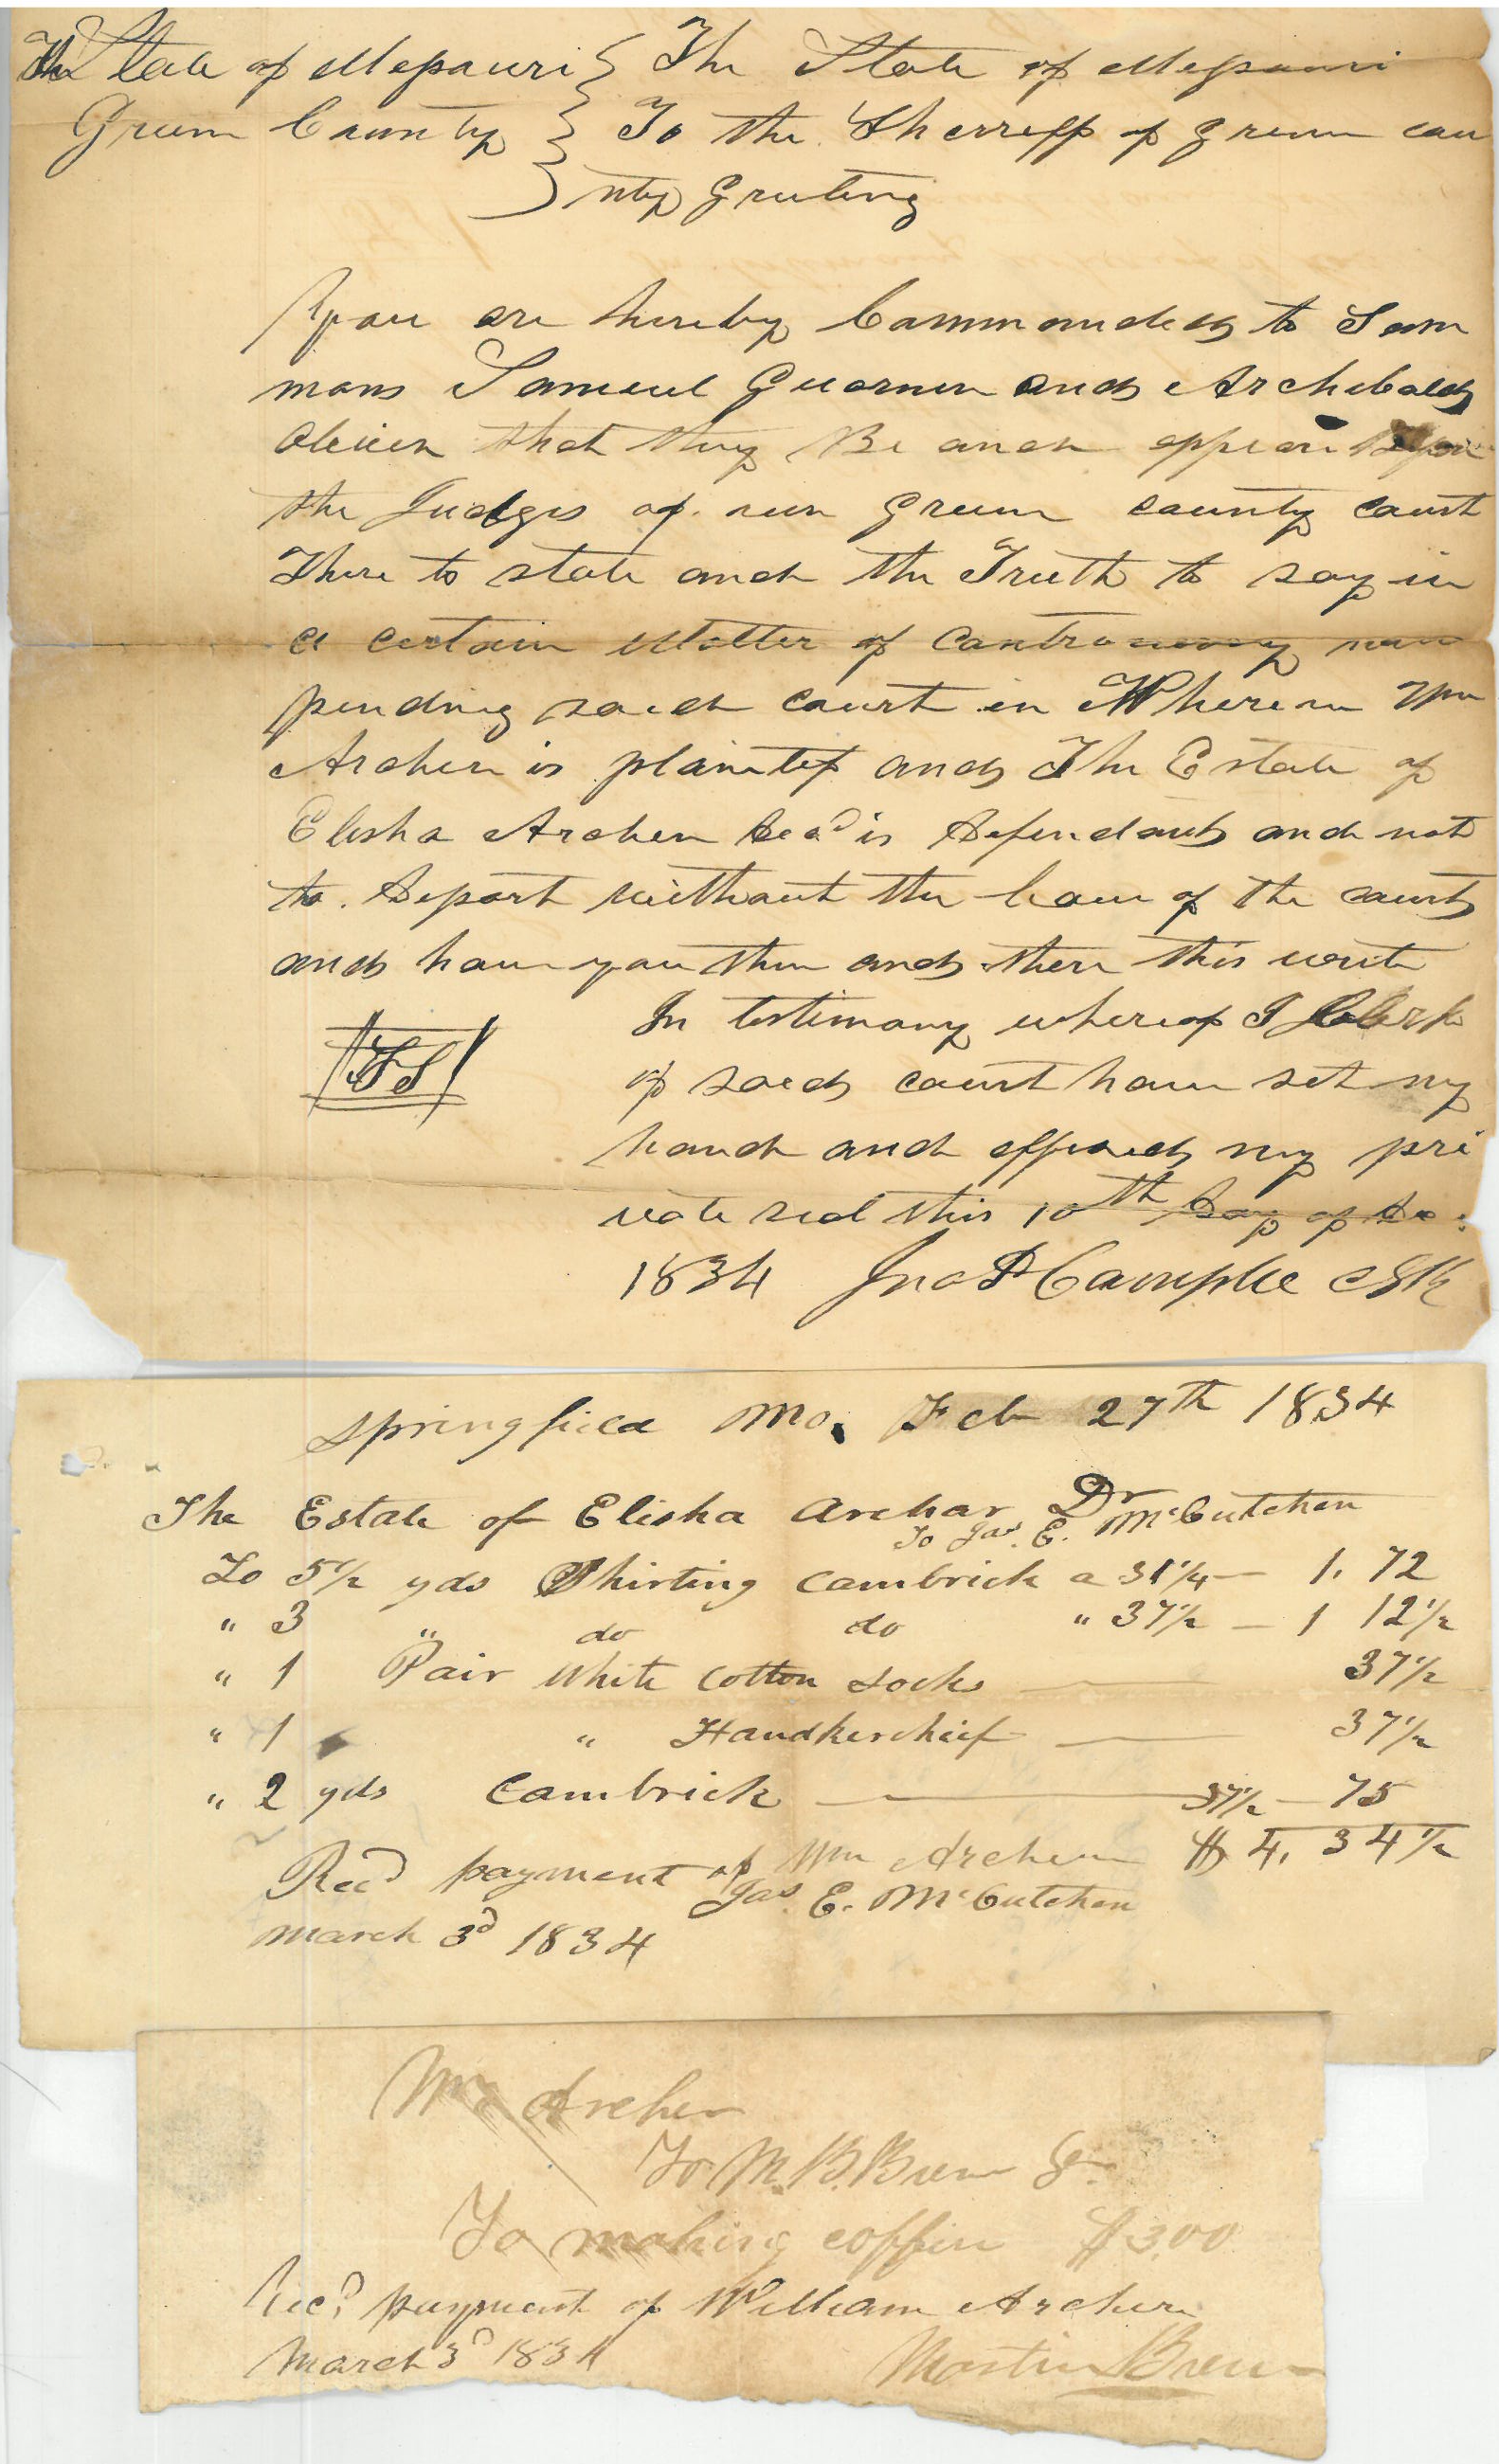 The State of Missouri } The State of Missouri
Green County } To the Sherreff of green cou
} nty Greeting
You are hereby Commanded to Sum
mons Samuel and Archibald
that they Be and appear Before
the Judges of our Green county court
There to state and the Truth to say in
a certain Matter of Controversy now
pending said court in Wherein Wm
Archer is plaintif and The Estate of
Elisha Archer Decd is Defendant and not
to Depart without the leave of the court
and have you then and there this writ
In testimony whereof I Clerk
of said court have set my
hand and affixed my pri
vate seal this 10th Day of De
1834 Jno P Campbell Clk
Springfield Mo. Feb 27th 1834
The Estate of Elisha Archar Dr
To Jas. E. McCutchen
To 5 1/2 yds Shirting Cambrick a 31 1/4 — 1. 72
" 3 " do do " 37 1/2 — 1 12 1/2
" 1 Pair White Cotton Socks — 37 1/2
" 1 " Handkerchief — 37 1/2
" 2 yds Cambrick — 37 1/2 — 75
$ 4. 34 1/2
Recd payment of Wm Archer
Jas. E. McCutchen
March 3d 1834
Archer
To M. B. Dr
To making coffin $3.00
Recd payment of William Archer
March 3d 1834 Martin